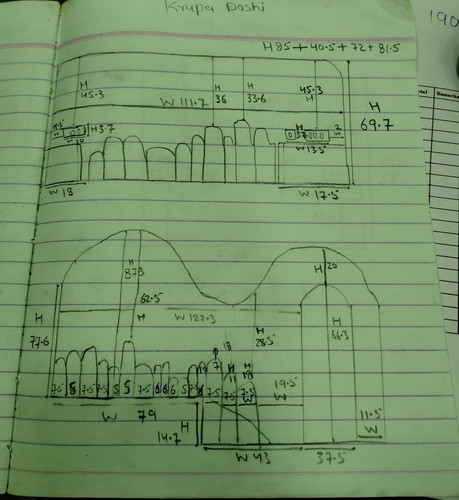 Krupa Doshi
190
H85 + 40.5 + 72 + 81.5
H
45.3
H
36
H
33.6
45.3
H
W 111.7
H
69.7
H3.7
W 13.5
W 18
W 17.5
H
87.3
H 20
62.5
H
W 122.3
H
77.6
H
28.5
66.3
7.5 8 7.5 7.5 5 5 7.5 6 6 6 5 7.5
7.5 7.5 7.5
19.5
W
11.5
W
W 79
14.7 H
W 43
37.5